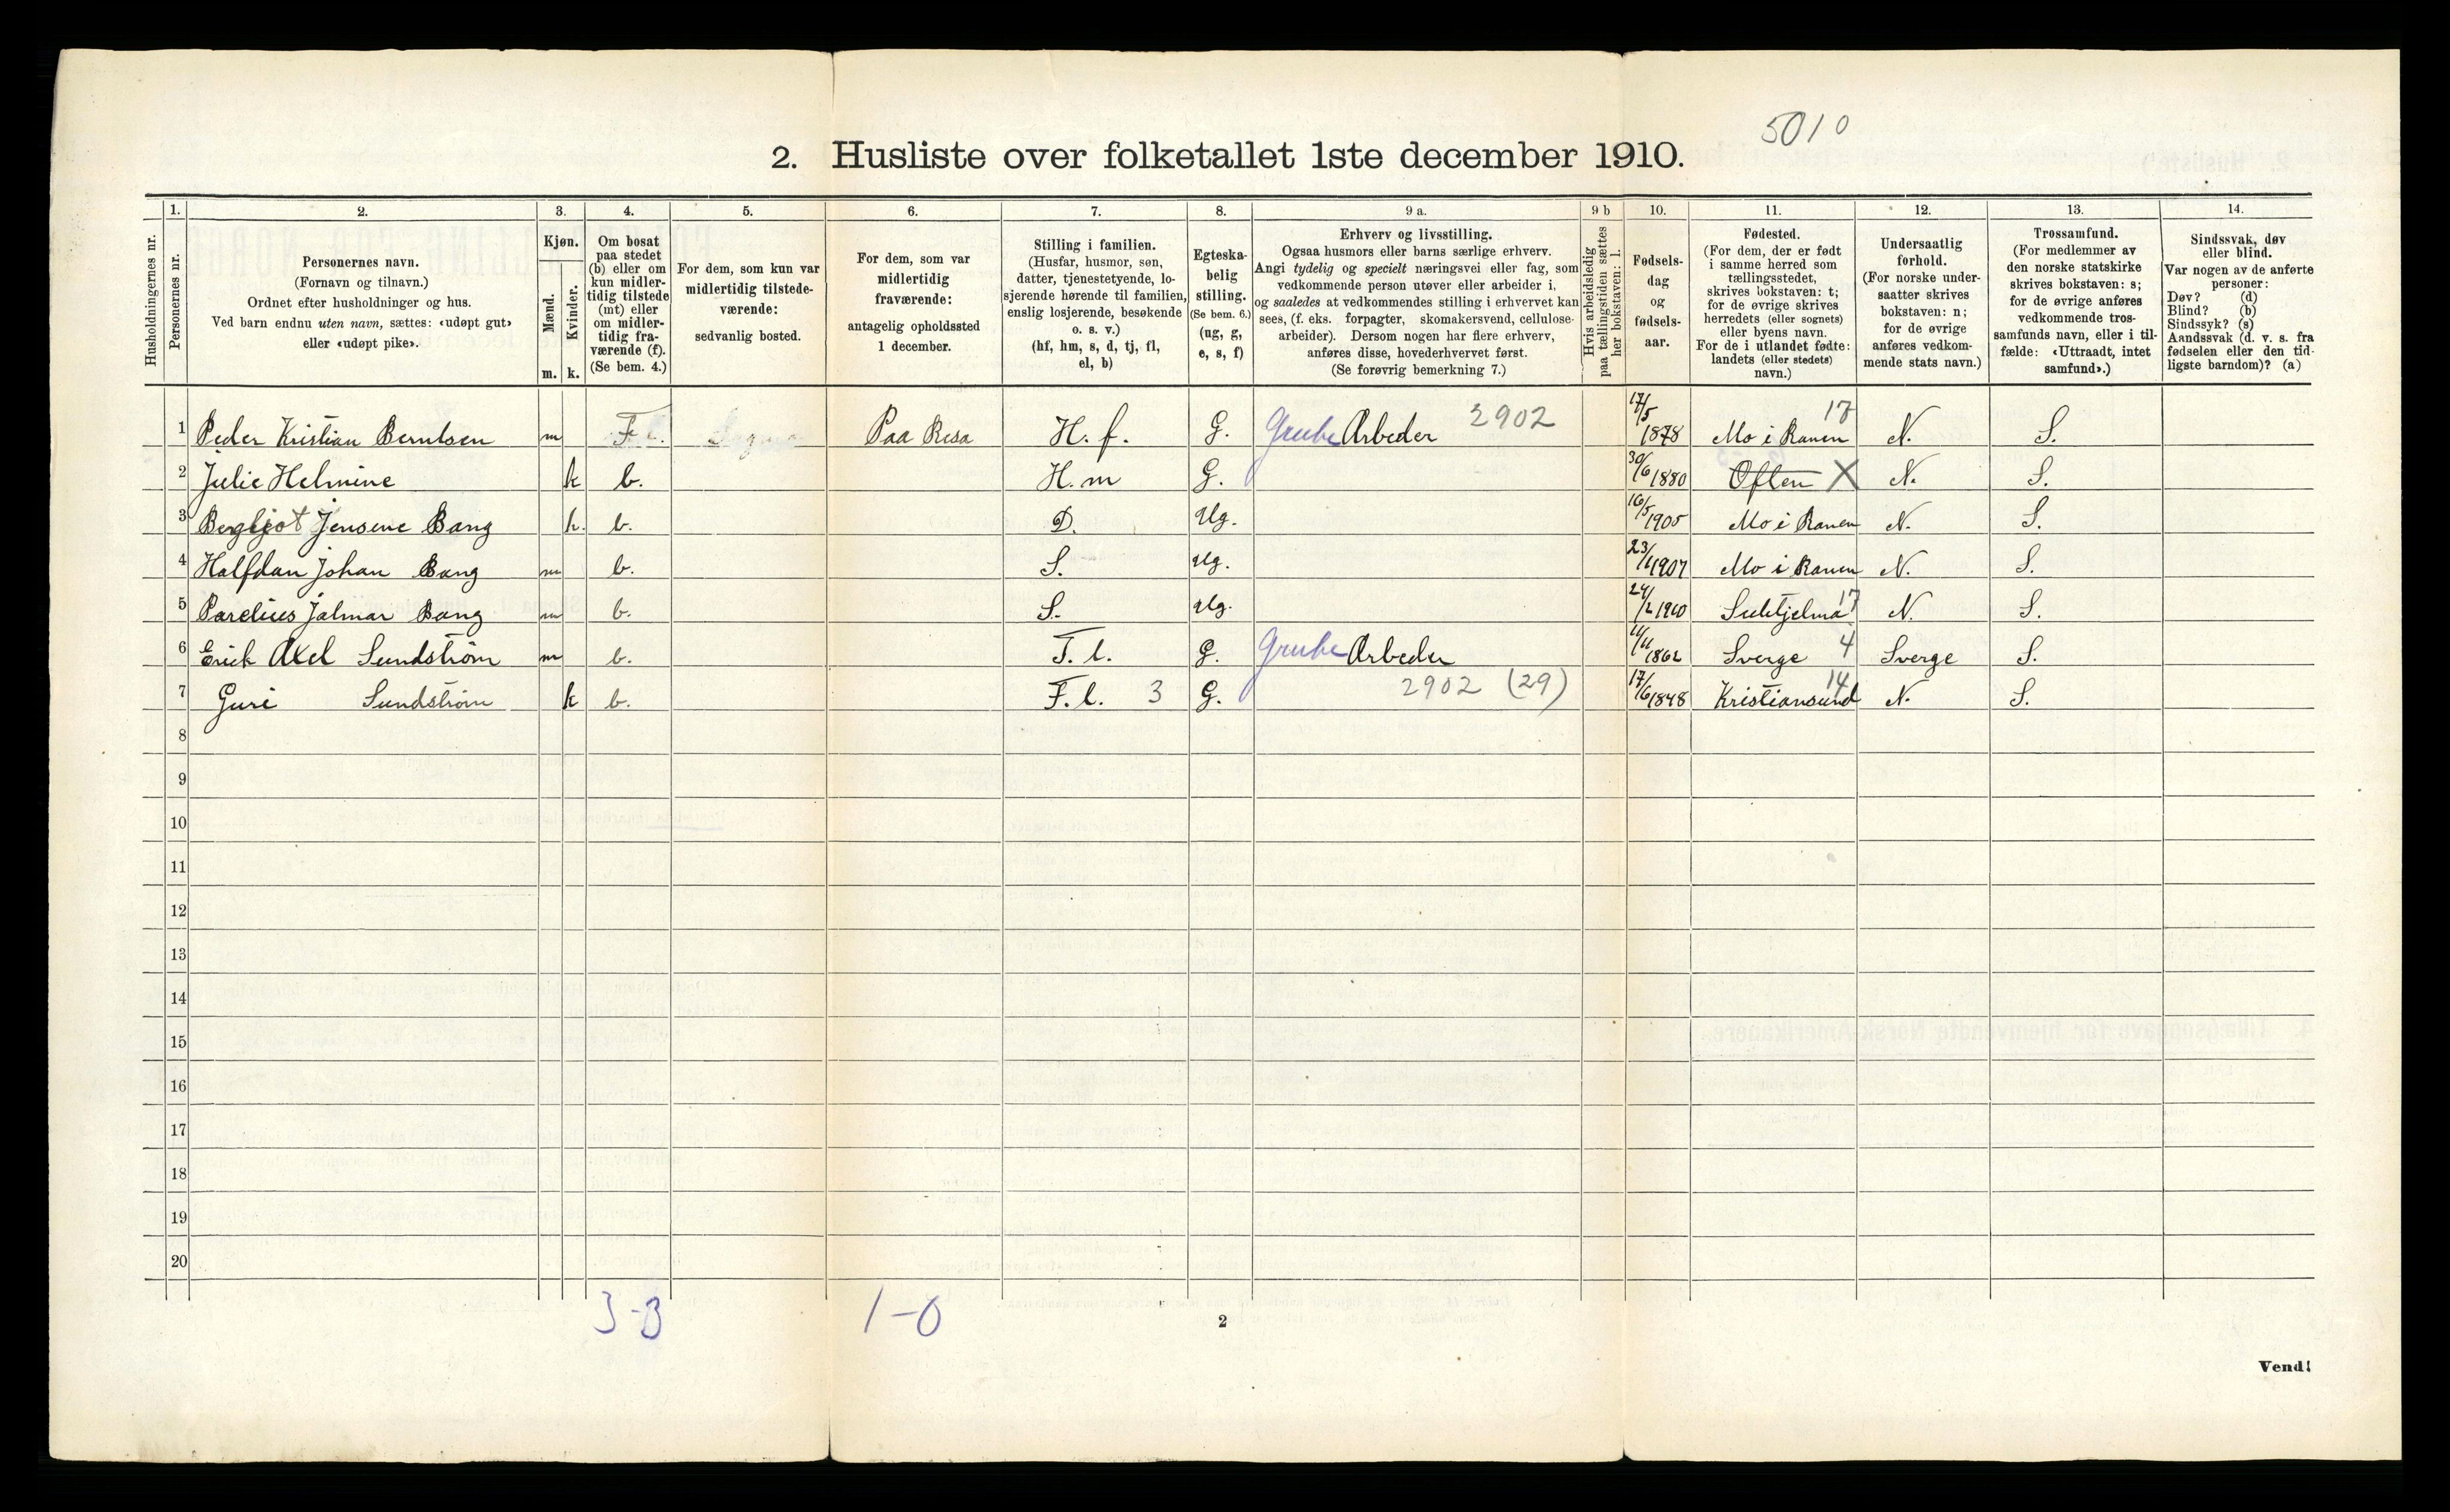 5010
2. Husliste over folketallet 1ste december 1910.
1. 2. 3. 4. 5. 6. 7. 8. 9 a. 9 b 10. 11. 12. 13. 14.
Husholdningernes nr.
Personernes nr.
Personernes navn.
(Fornavn og tilnavn.)
Ordnet efter husholdninger og hus.
Ved barn endnu uten navn, sættes: «udøpt gut»
eller «udøpt pike».
Kjøn.
Mænd.
Kvinder.
m. k.
Om bosat
paa stedet
(b) eller om
kun midler-
tidig tilstede
(mt) eller
om midler-
tidig fra-
værende (f).
(Se bem. 4.)
For dem, som kun var
midlertidig tilstede-
værende:
sedvanlig bosted.
For dem, som var
midlertidig
fraværende:
antagelig opholdssted
1 december.
Stilling i familien.
(Husfar, husmor, søn,
datter, tjenestetyende, lo-
sjerende hørende til familien,
enslig losjerende, besøkende
o. s. v.)
(hf, hm, s, d, tj, fl,
el, b)
Egteska-
belig
stilling.
(Se bem. 6.)
(ug, g,
e, s, f)
Erhverv og livsstilling.
Ogsaa husmors eller barns særlige erhverv.
Angi tydelig og specielt næringsvei eller fag, som
vedkommende person utøver eller arbeider i,
og saaledes at vedkommendes stilling i erhvervet kan
sees, (f. eks. forpagter, skomakersvend, cellulose-
arbeider). Dersom nogen har flere erhverv,
anføres disse, hovederhvervet først.
(Se forøvrig bemerkning 7.)
Hvis arbeidsledig
paa tællingstiden sættes
her bokstaven: l.
Fødsels-
dag
og
fødsels-
aar.
Fødested.
(For dem, der er født
i samme herred som
tællingsstedet,
skrives bokstaven: t;
for de øvrige skrives
herredets (eller sognets)
eller byens navn.
For de i utlandet fødte:
landets (eller stedets)
navn.)
Undersaatlig
forhold.
(For norske under-
saatter skrives
bokstaven: n;
for de øvrige
anføres vedkom-
mende stats navn.)
Trossamfund.
(For medlemmer av
den norske statskirke
skrives bokstaven: s;
for de øvrige anføres
vedkommende tros-
samfunds navn, eller i til-
fælde: «Uttraadt, intet
samfund».)
Sindssvak, døv
eller blind.
Var nogen av de anførte
personer:
Døv? (d)
Blind? (b)
Sindssyk? (s)
Aandssvak (d. v. s. fra
fødselen eller den tid-
ligste barndom)? (a)
1 Peder Kristian Berntsen m F Paa Resa H. f. G. Grube Arbeder 2902 17/5 1878 Mo i Ranen 17 N. S.
2 Julie Helmine k b. H. m G. 30/6 1880 Often X N. S.
3 Bergljot Jensene Bang k. b. D. Ug. 16/5 1905 Mo i Ranen N. S.
4 Halfdan Johan Bang m b. S. Ug. 23/1 1907 Mo i Ranen N. S.
5 Parelius Jalmar Bang m b. S. Ug. 24/2 1910 Sulitjelma 17 N. S.
6 Erick Axel Sundström m b. F. l. G. Grube Arbeder 11/11 1862 Sverge 4 Sverge S.
7 Guri Sundström k b. F. l. 3 G. 2902 (29) 17/6 1848 Kristiansund 14 N. S.
8
9
10
11
12
13
14
15
16
17
18
19
20
3-3 1-0
2
Vend!